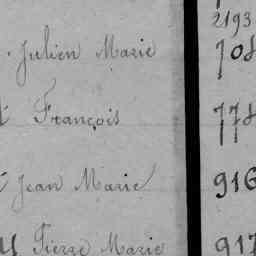 2193
Julien Marie 708
François 778
Jean Marie 916
Pierre Marie 917